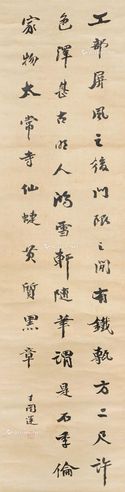 工部屏風之後門限之間有鐵𫐄方二尺許
色渾甚古明人鴻雪軒隨筆謂是石季倫
家物太常寺仙蜨黃質黑章
王闓運